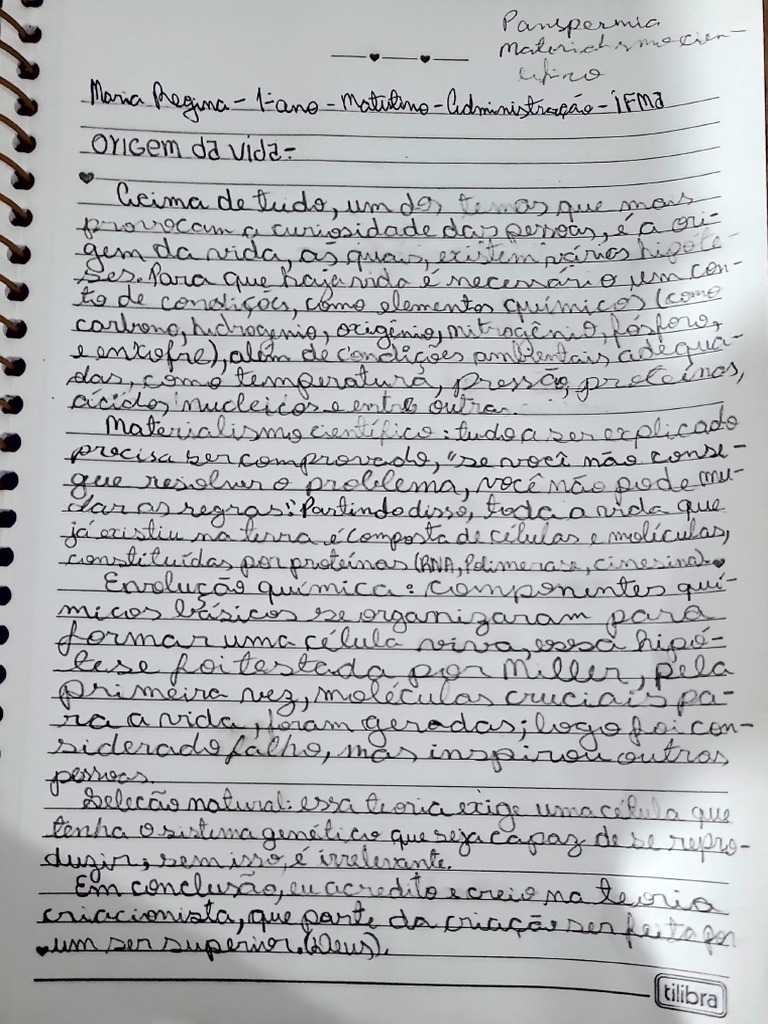 Panspermia
Materialismo cien-
tífico
Maria Regina - 1º ano - Matutino - Administração - IFMA
Origem da vida -
Acima de tudo, um dos temas que mais
provocam a curiosidade das pessoas, é a ori-
gem da vida, as quais, existem vários hipóte-
ses. Para que haja vida é necessário um con-
to de condições, como elementos químicos (como
carbono, hidrogênio, oxigênio, nitrogênio, fósforo,
e enxofre), além de condições ambientais adequa-
das, como temperatura, pressão, proteínas,
ácidos nucleicos e entre outra.
Materialismo científico: tudo a ser explicado
precisa ser comprovado, "se você não conse-
gue resolver o problema, você não pode mu-
dar as regras". Partindo disso, toda a vida que
já existiu na terra é composta de células e moléculas,
constituídas por proteínas (RNA, Polimerase, cinesina).
Envolução química: componentes quí-
micos básicos se organizaram para
formar uma célula viva, essa hipó-
tese foi testada por Miller, pela
primeira vez, moléculas cruciais pa-
ra a vida, foram geradas; logo foi con-
siderado falho, mas inspirou outras
pessoas.
Seleção natural: essa teoria exige uma célula que
tenha o sistema genético que seja capaz de se repro-
duzir, sem isso, é irrelevante.
Em conclusão, eu acredito e creio na teoria
criacionista, que parte da criação ser feita por
um ser superior. (Deus).
tilibra